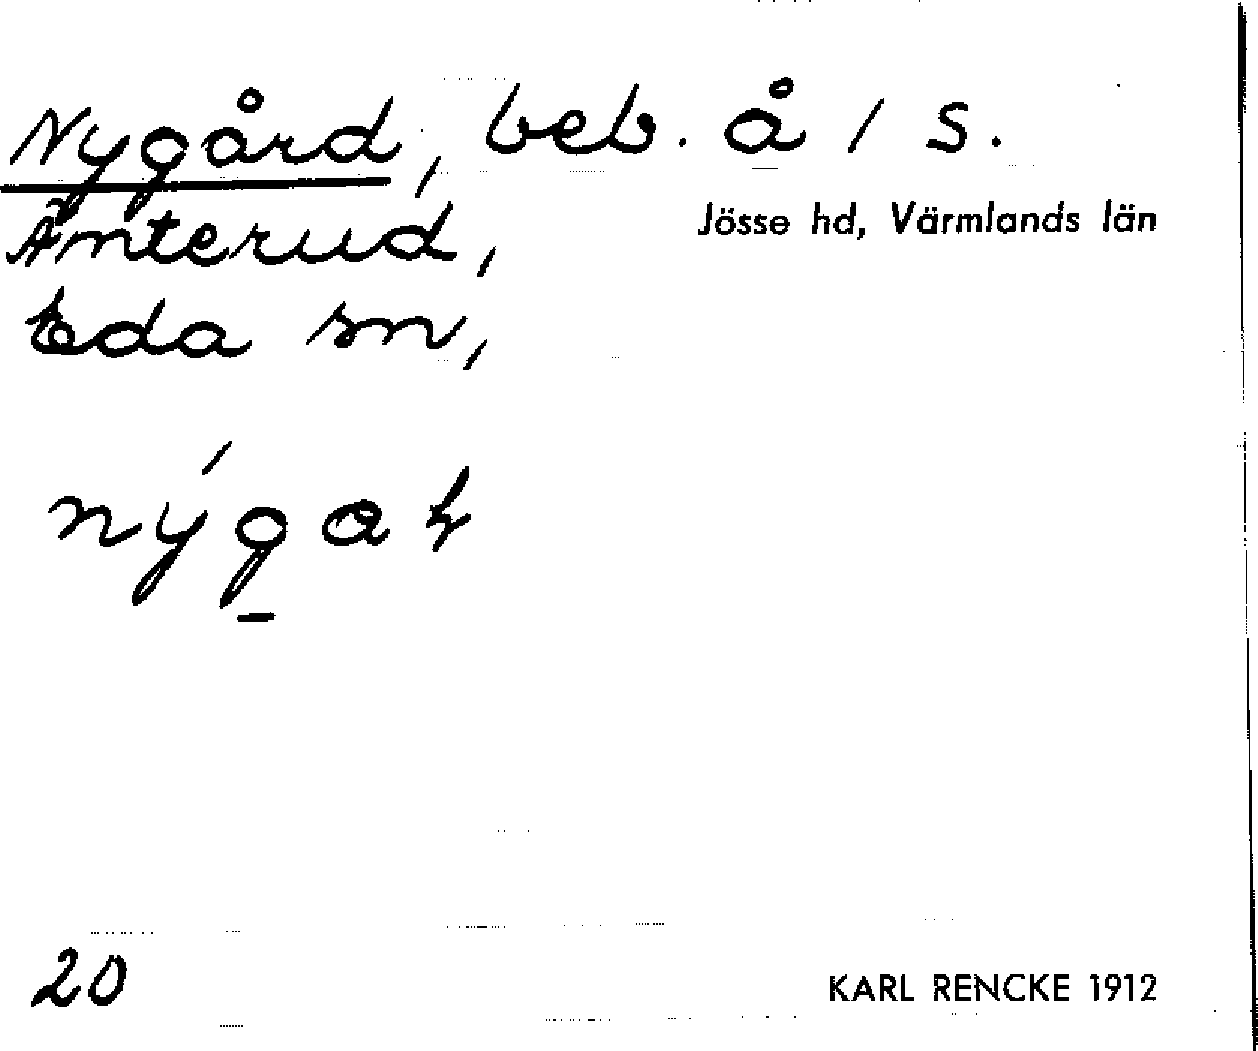 Nygård, beb. å / S.
Änterud,
Jösse hd, Värmlands län
Eda sn,
20
KARL RENCKE 1912